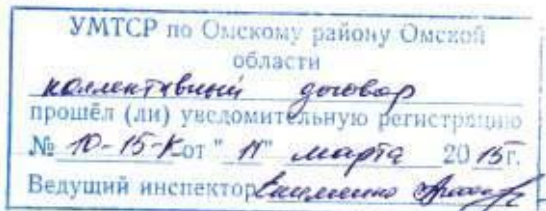 УМТСР по Омскому району Омской
области
коллективный договор
прошёл (ли) уведомительную регистрацию
№ 10-15-К от "11" марта 2015г.
Ведущий инспектор